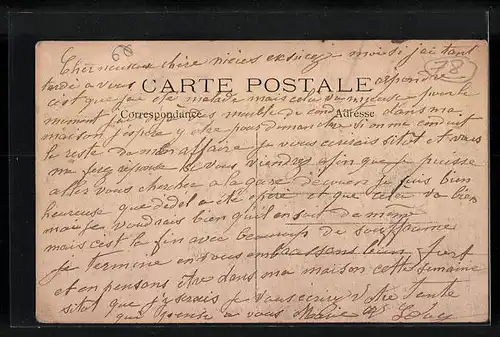 60
Cher neveux chère nièces excusez moi si j'ai tant
78
tardé a vous répondre
CARTE POSTALE
c'est que j'ai été malade mais cela va mieux pour le
Correspondance Adresse
moment meuble de dans ma
maison j'espère y etre pour dimanche si on me conduit
le reste de mon affaire je vous écrirais sitot et vous
me ferez réponse si vous viendrez afin que je puisse
aller vous chercher a la gare je suis bien
heureuse que Dédel a été opéré et que cela va bien
moi je voudrais bien qu'il en soit de meme
mais c'est la fin avec beaucoup de souffrance
je termine en vous embrassant bien fort
et en pensant être dans ma maison cette semaine
sitot que j'y serais je vous écrirai Votre tante
qui pense a vous Marie